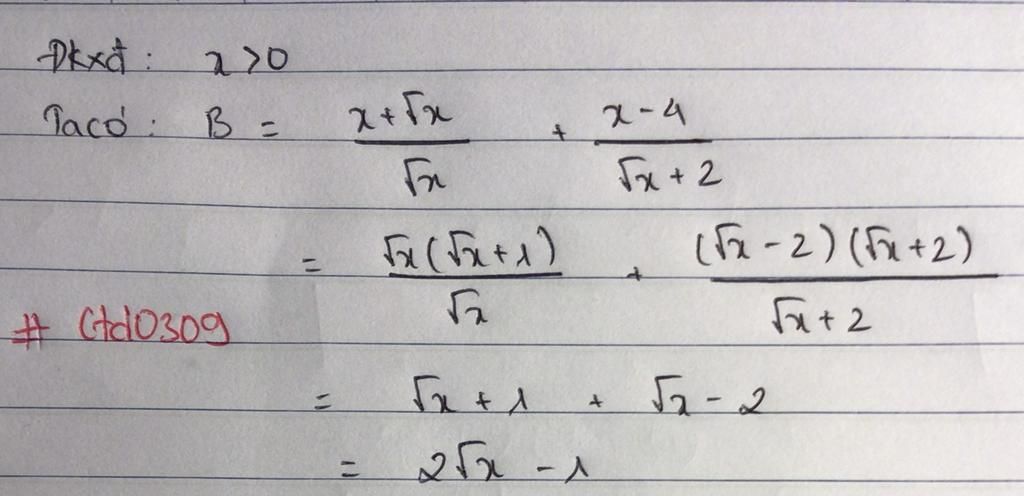 Đkxđ : x > 0
Ta có : B = \frac{x + √x}{√x} + \frac{x - 4}{√x + 2}
= \frac{√x (√x + 1)}{√x} + \frac{(√x - 2) (√x + 2)}{√x + 2}
# Ctd0309
= √x + 1 + √x - 2
= 2√x - 1